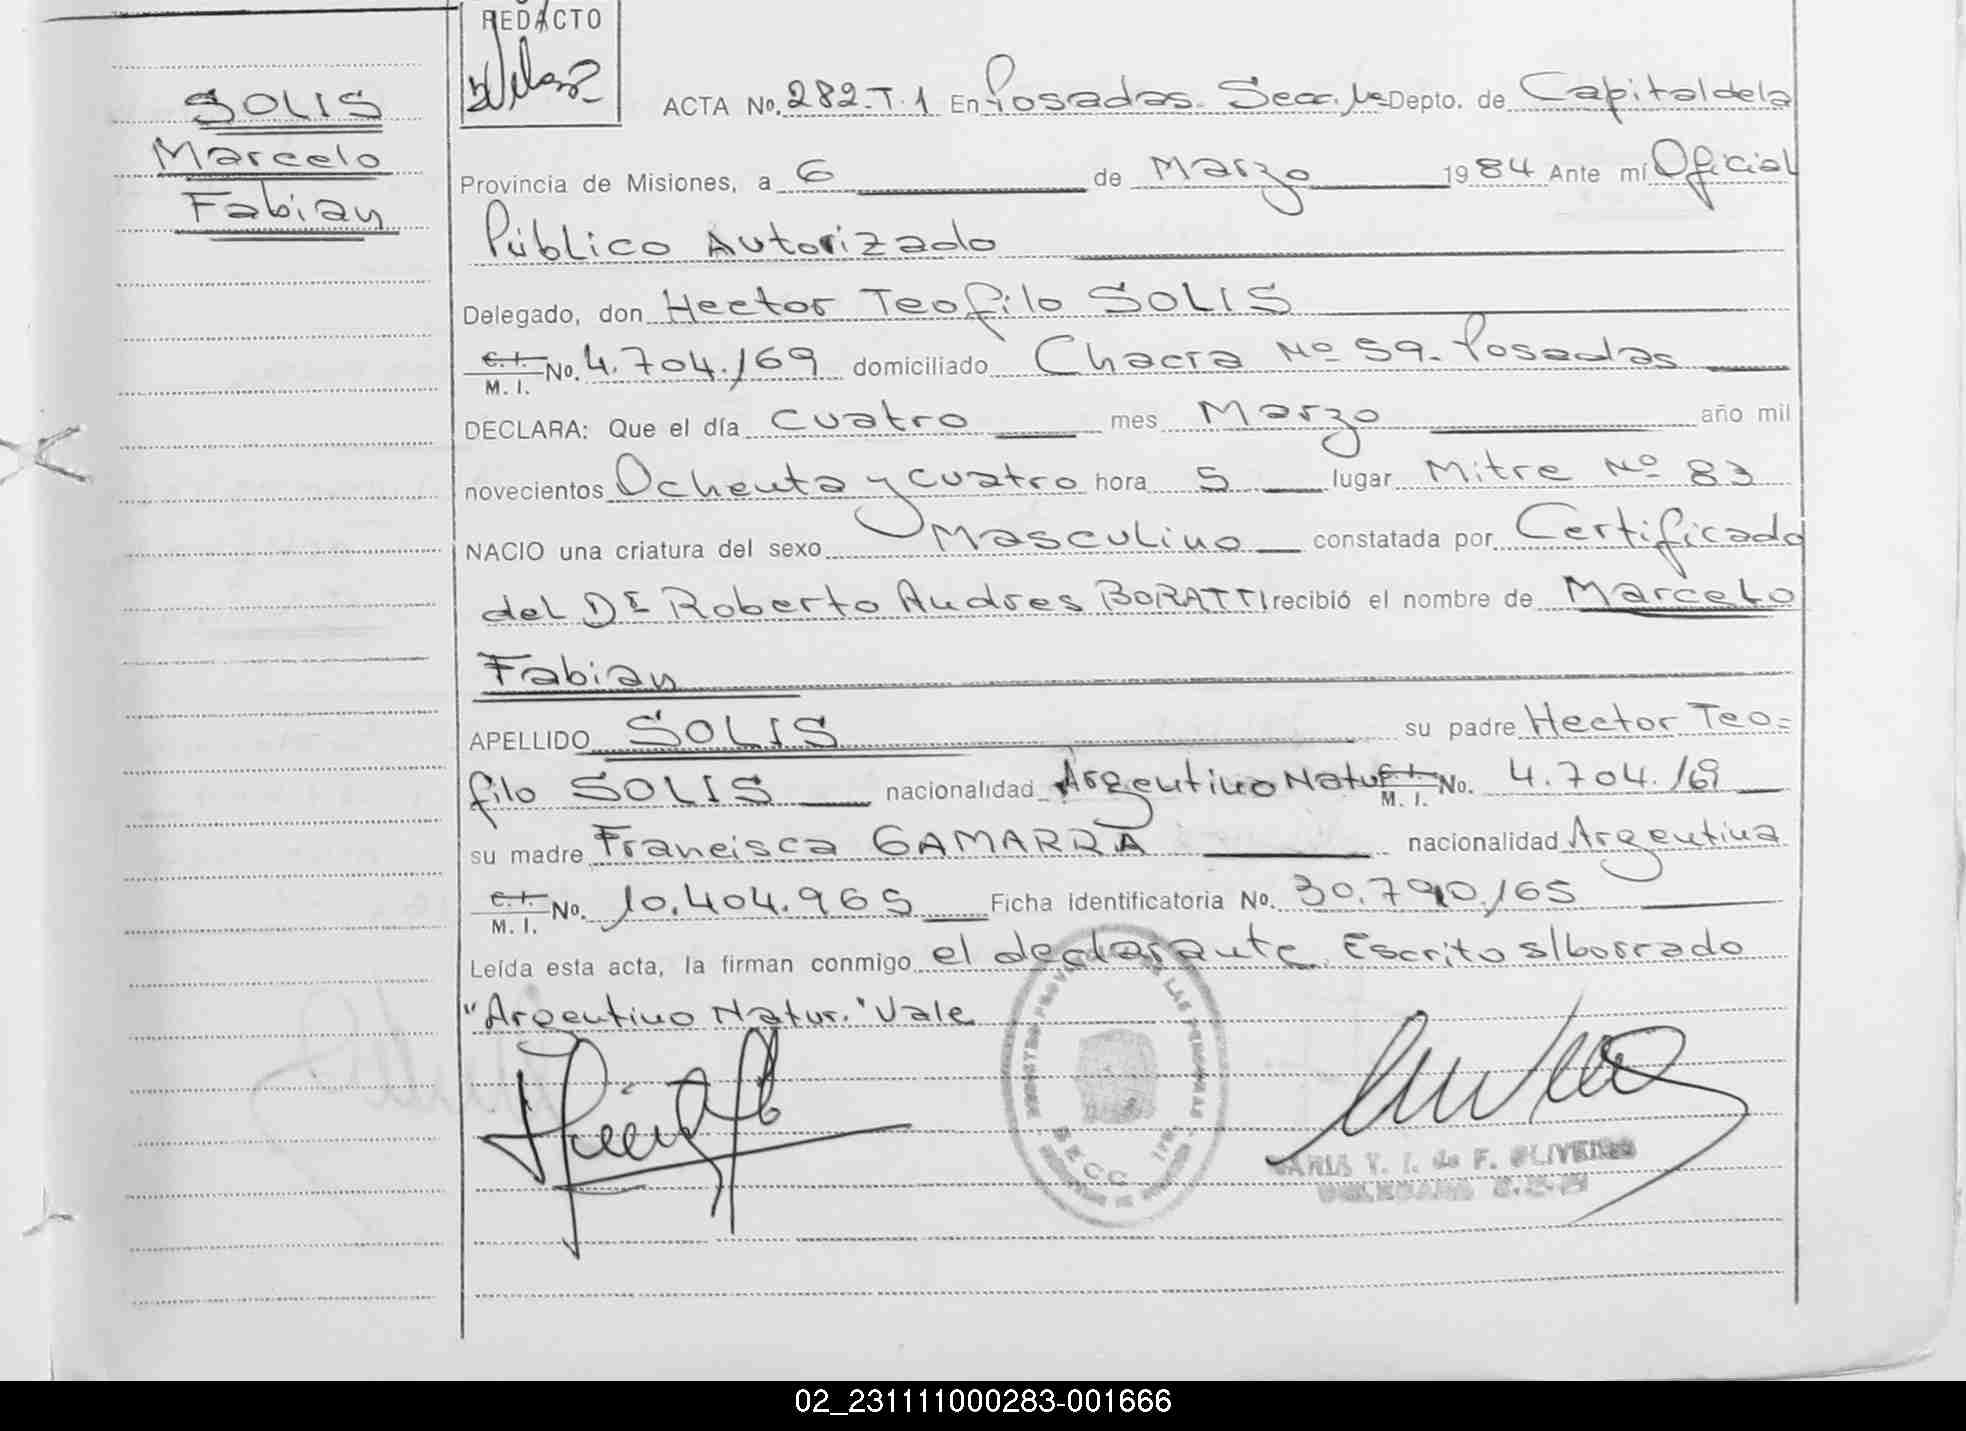 REDACTO
SOLIS
Marcelo
Fabian
ACTA No. 282.T.1 En Posadas. Secc. 1a Depto. de Capital de la
Provincia de Misiones, a 6 de Marzo 1984 Ante mí Oficial
Público Autorizado
Delegado, don Hector Teofilo SOLIS
C.I. M.I. No. 4.704.169 domiciliado Chacra Nº 59. Posadas
DECLARA: Que el día cuatro mes Marzo año mil
novecientos Ochenta y cuatro hora 5 lugar Mitre Nº 83
NACIO una criatura del sexo Masculino constatada por Certificado
del Dr Roberto Andres BORATTI recibió el nombre de Marcelo
Fabian
APELLIDO SOLIS su padre Hector Teo=
filo SOLIS nacionalidad Argentino Natur C.I. M.I. No. 4.704.169
su madre Francisca GAMARRA nacionalidad Argentina
C.I. M.I. No. 10.404.965 Ficha identificatoria No. 30.790/65
Leída esta acta, la firman conmigo el declarante. Escrito s/borrado
"Argentino Natur." Vale
SECC. 1ra.
MARIA V. I. de F. OLIVEIRA
DELEGADO
02_231111000283-001666